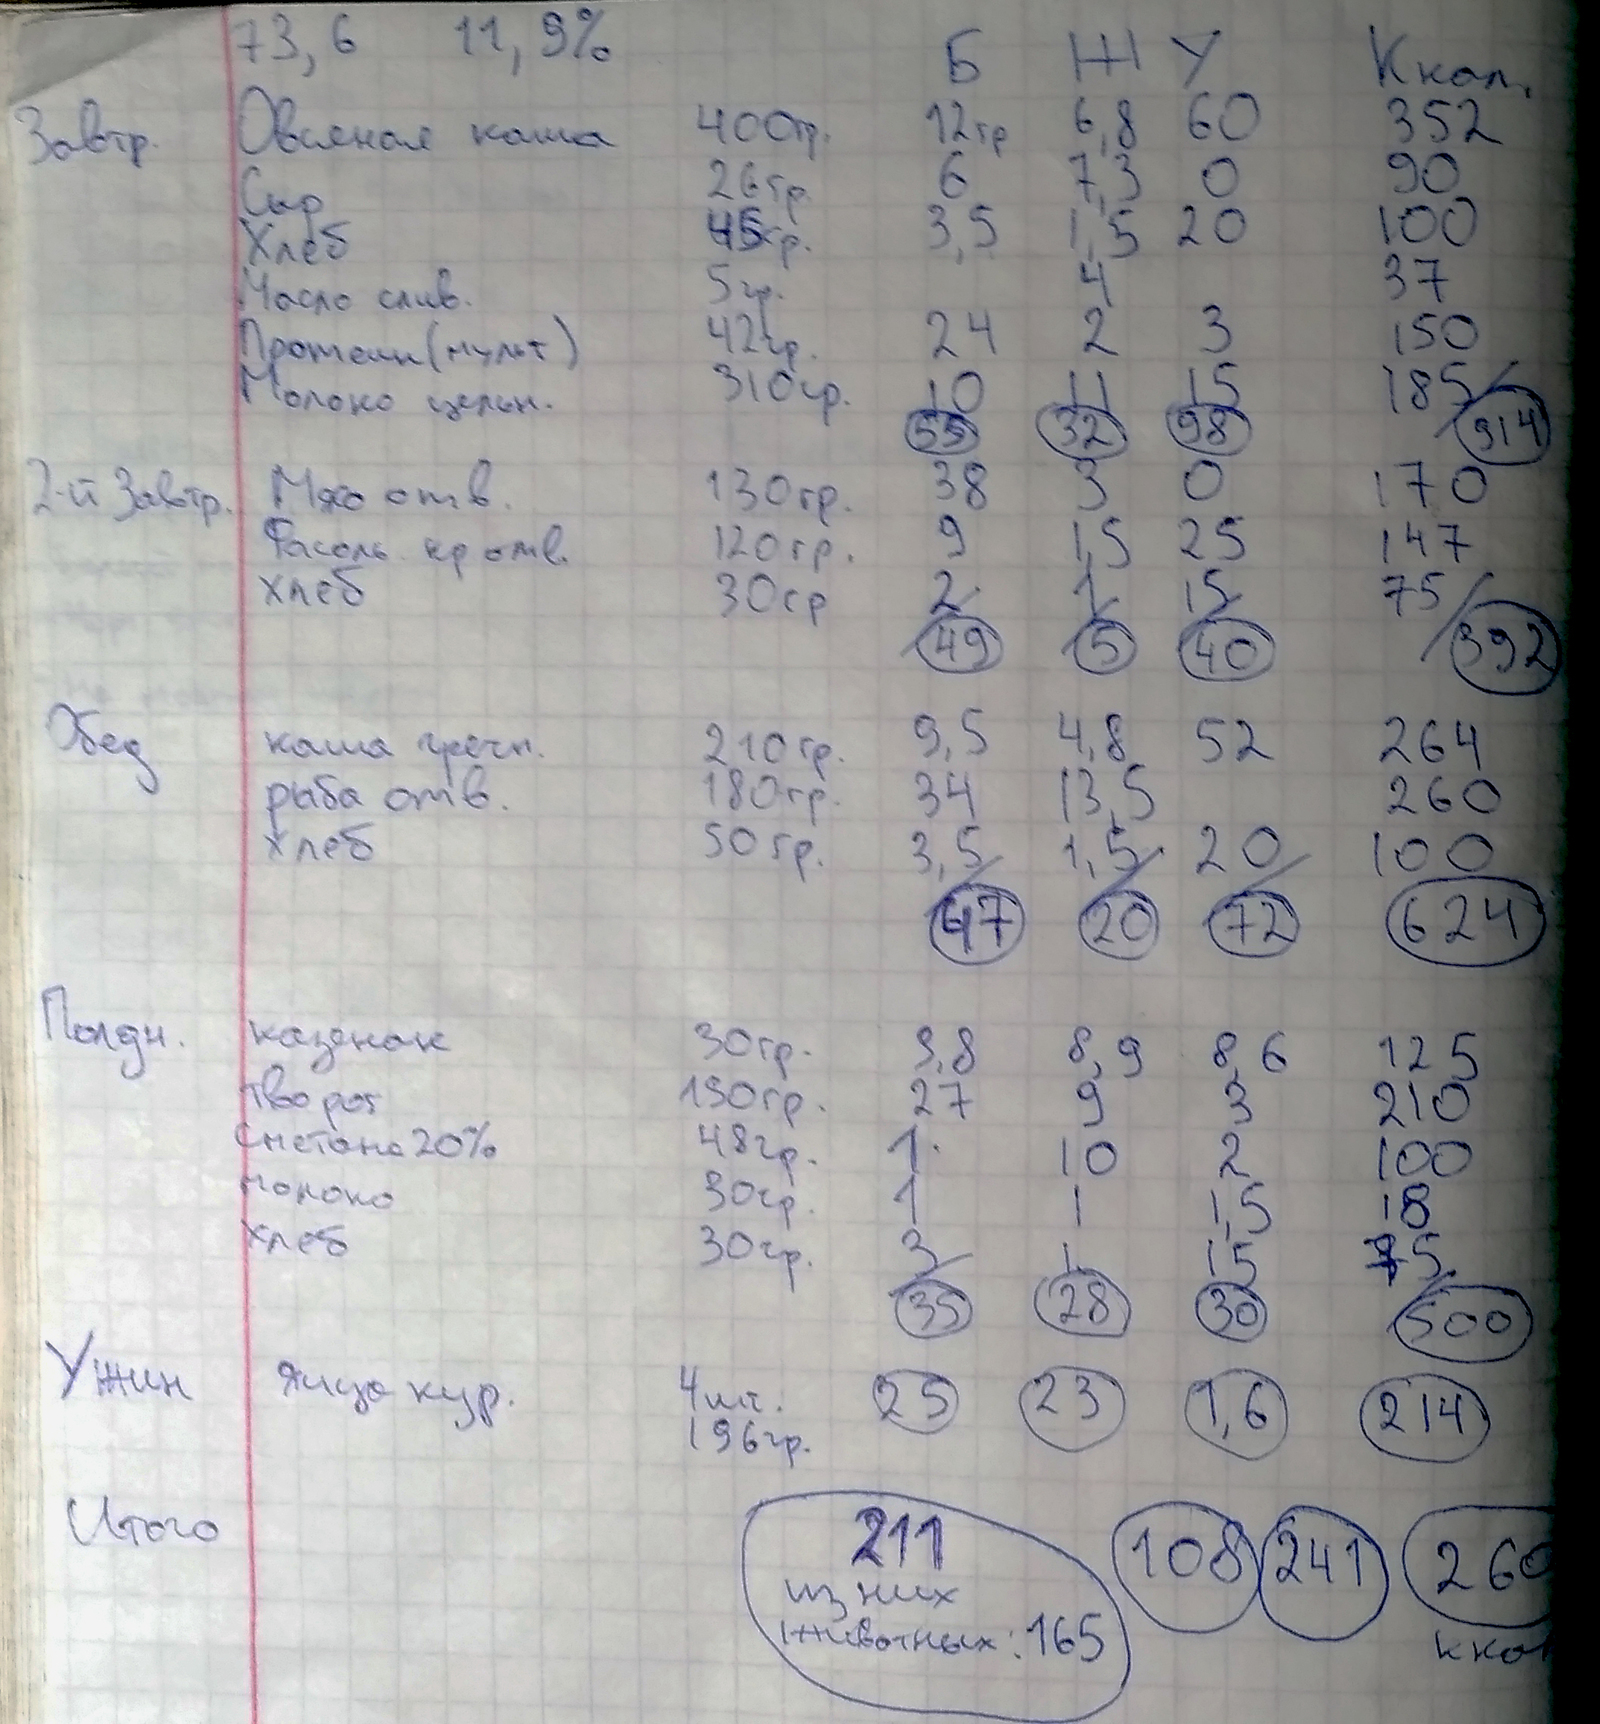 73,6 11,9%
Б Ж У Ккал.
Завтр. Овсяная каша 400гр. 12гр 6,8 60 352
Сыр 26гр. 6 7,3 0 90
Хлеб 45гр. 3,5 1,5 20 100
Масло слив. 5гр. 4 37
Протеин(мульт) 42гр. 24 2 3 150
Молоко цельн. 310гр. 10 11 15 185
55 32 98 914
2-й Завтр. Мясо отв. 130гр. 38 3 0 170
Фасоль кр отв. 120гр. 9 1,5 25 147
хлеб 30гр 2 1 15 75
49 5 40 392
Обед каша гречн. 210гр. 9,5 4,8 52 264
рыба отв. 180гр. 34 13,5 260
хлеб 50гр. 3,5 1,5 20 100
47 20 72 624
Полдн. казенак 30гр. 3,8 8,9 8,6 125
творог 150гр. 27 9 3 210
сметана 20% 48гр. 1 10 2 100
молоко 30гр. 1 1 1,5 18
хлеб 30гр. 3 1 15 75
35 28 30 500
Ужин Яйцо кур. 4шт. 25 23 1,6 214
196гр.
Итого 211 108 241 260
из них
животных: 165 ккал